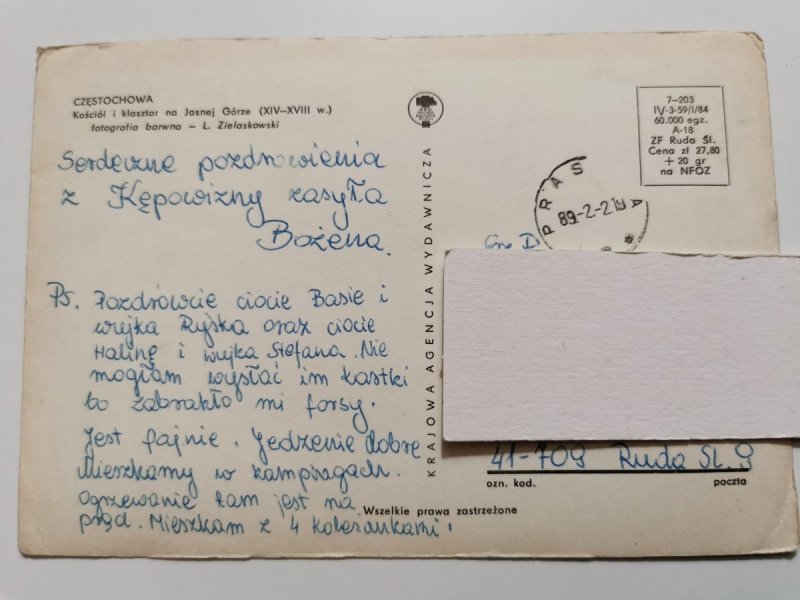 CZĘSTOCHOWA
Kościół i klasztor na Jasnej Górze (XIV—XVIII w.)
fotografia barwna — L. Zielaskowski
Serdeczne pozdrowienia
z Kępowizny zasyła
Bożena.
Ps. Pozdrówcie ciocie Basie i
wujka Ryśka oraz ciocie
Halinę i wujka Stefana. Nie
mogłam wysłać im kartki
bo zabrakło mi forsy.
Jest fajnie. Jedzenie dobre
Mieszkamy w kampingach.
Ogrzewanie tam jest na
prąd. Mieszkam z 4 koleżankami!
KRAJOWA AGENCJA WYDAWNICZA
Wszelkie prawa zastrzeżone
7—203
IV-3-59/I/84
60.000 egz.
A-18
ZF Ruda Śl.
Cena zł 27,80
+ 20 gr
na NFOZ
89-2-2
41-709 Ruda Śl. 9
ozn. kod. poczta